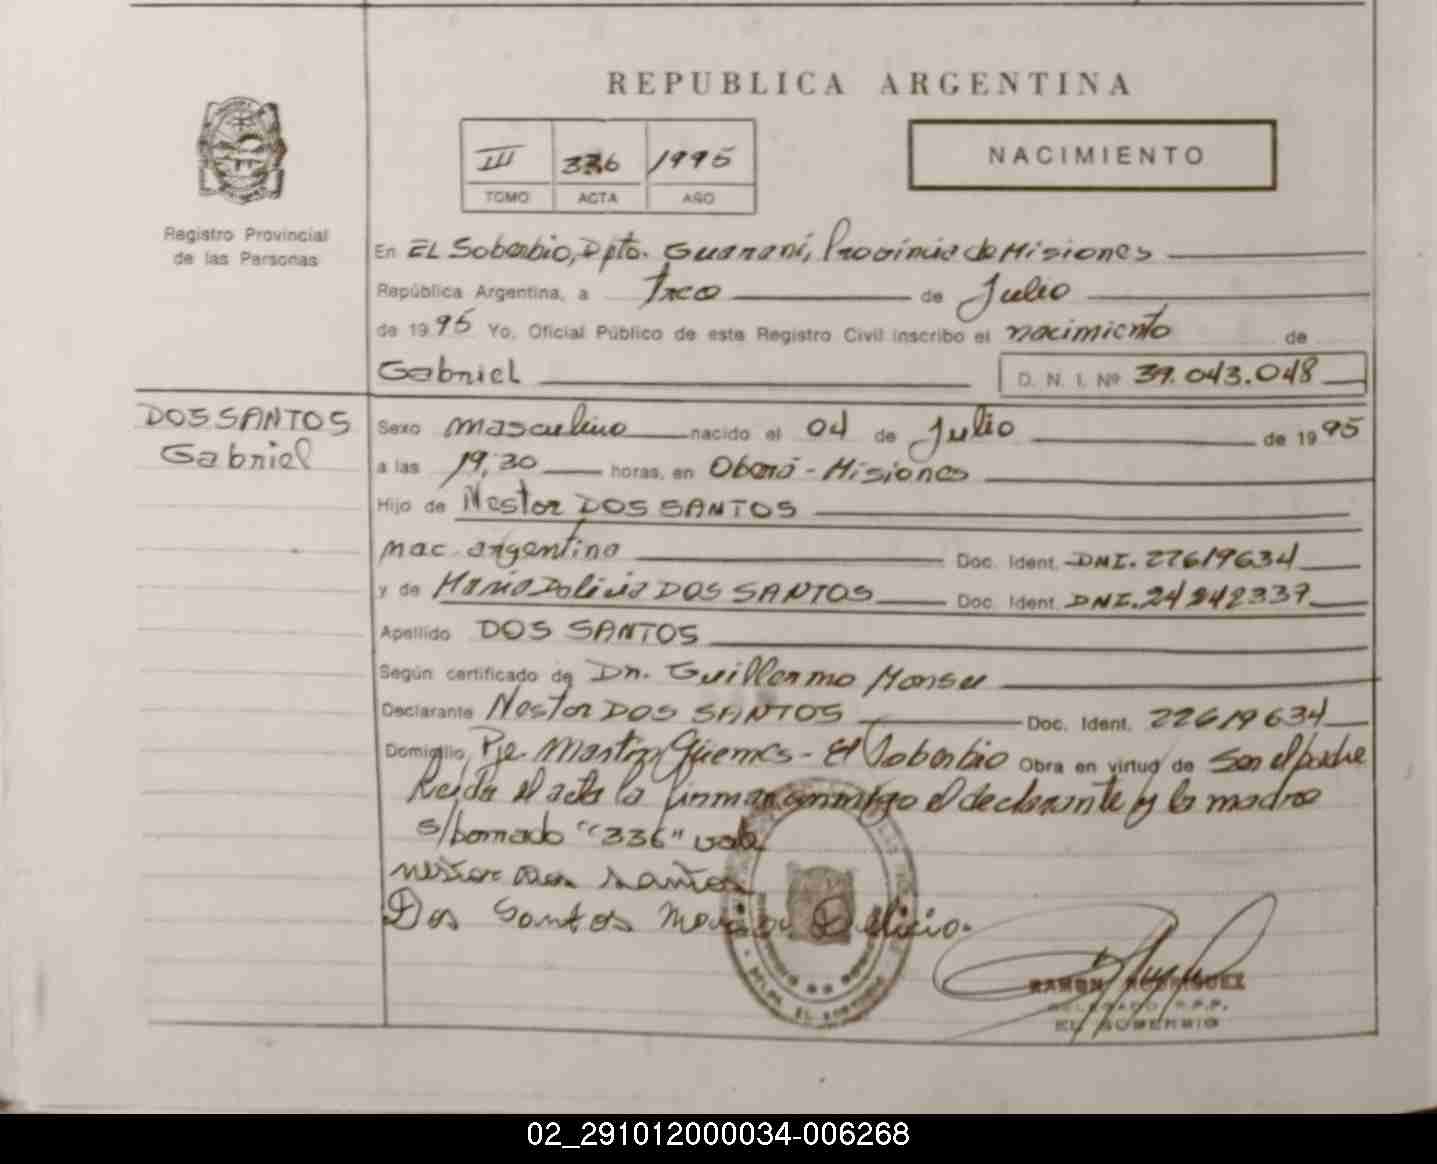 REPUBLICA ARGENTINA
III 336 1995
TOMO ACTA AÑO
NACIMIENTO
Registro Provincial
de las Personas
En EL Soberbio, Dpto. Guaraní, Provincia de Misiones
República Argentina, a Trece de Julio
de 1995 Yo, Oficial Público de este Registro Civil inscribo el nacimiento de
Gabriel D. N. I. Nº 39.043.048
DOS SANTOS
Gabriel
Sexo masculino nacido el 04 de Julio de 1995
a las 19,30 horas, en Oberá - Misiones
Hijo de Nestor DOS SANTOS
nac. argentino Doc. Ident. DNI. 22619634
y de Maria Dolicia DOS SANTOS Doc. Ident. DNI. 24242337
Apellido DOS SANTOS
Según certificado de Dr. Guillermo
Declarante Nestor DOS SANTOS Doc. Ident. 22619634
Domicilio Pje Martin Güemes - El Soberbio Obra en virtud de Ser el padre
Leida el acta la firman conmigo el declarante y la madre
s/borrado "336" vale
nestor Dos santos
Dos Santos Maria
RAMON RODRIGUEZ
DELEGADO R.P.P.
EL SOBERBIO
02_291012000034-006268